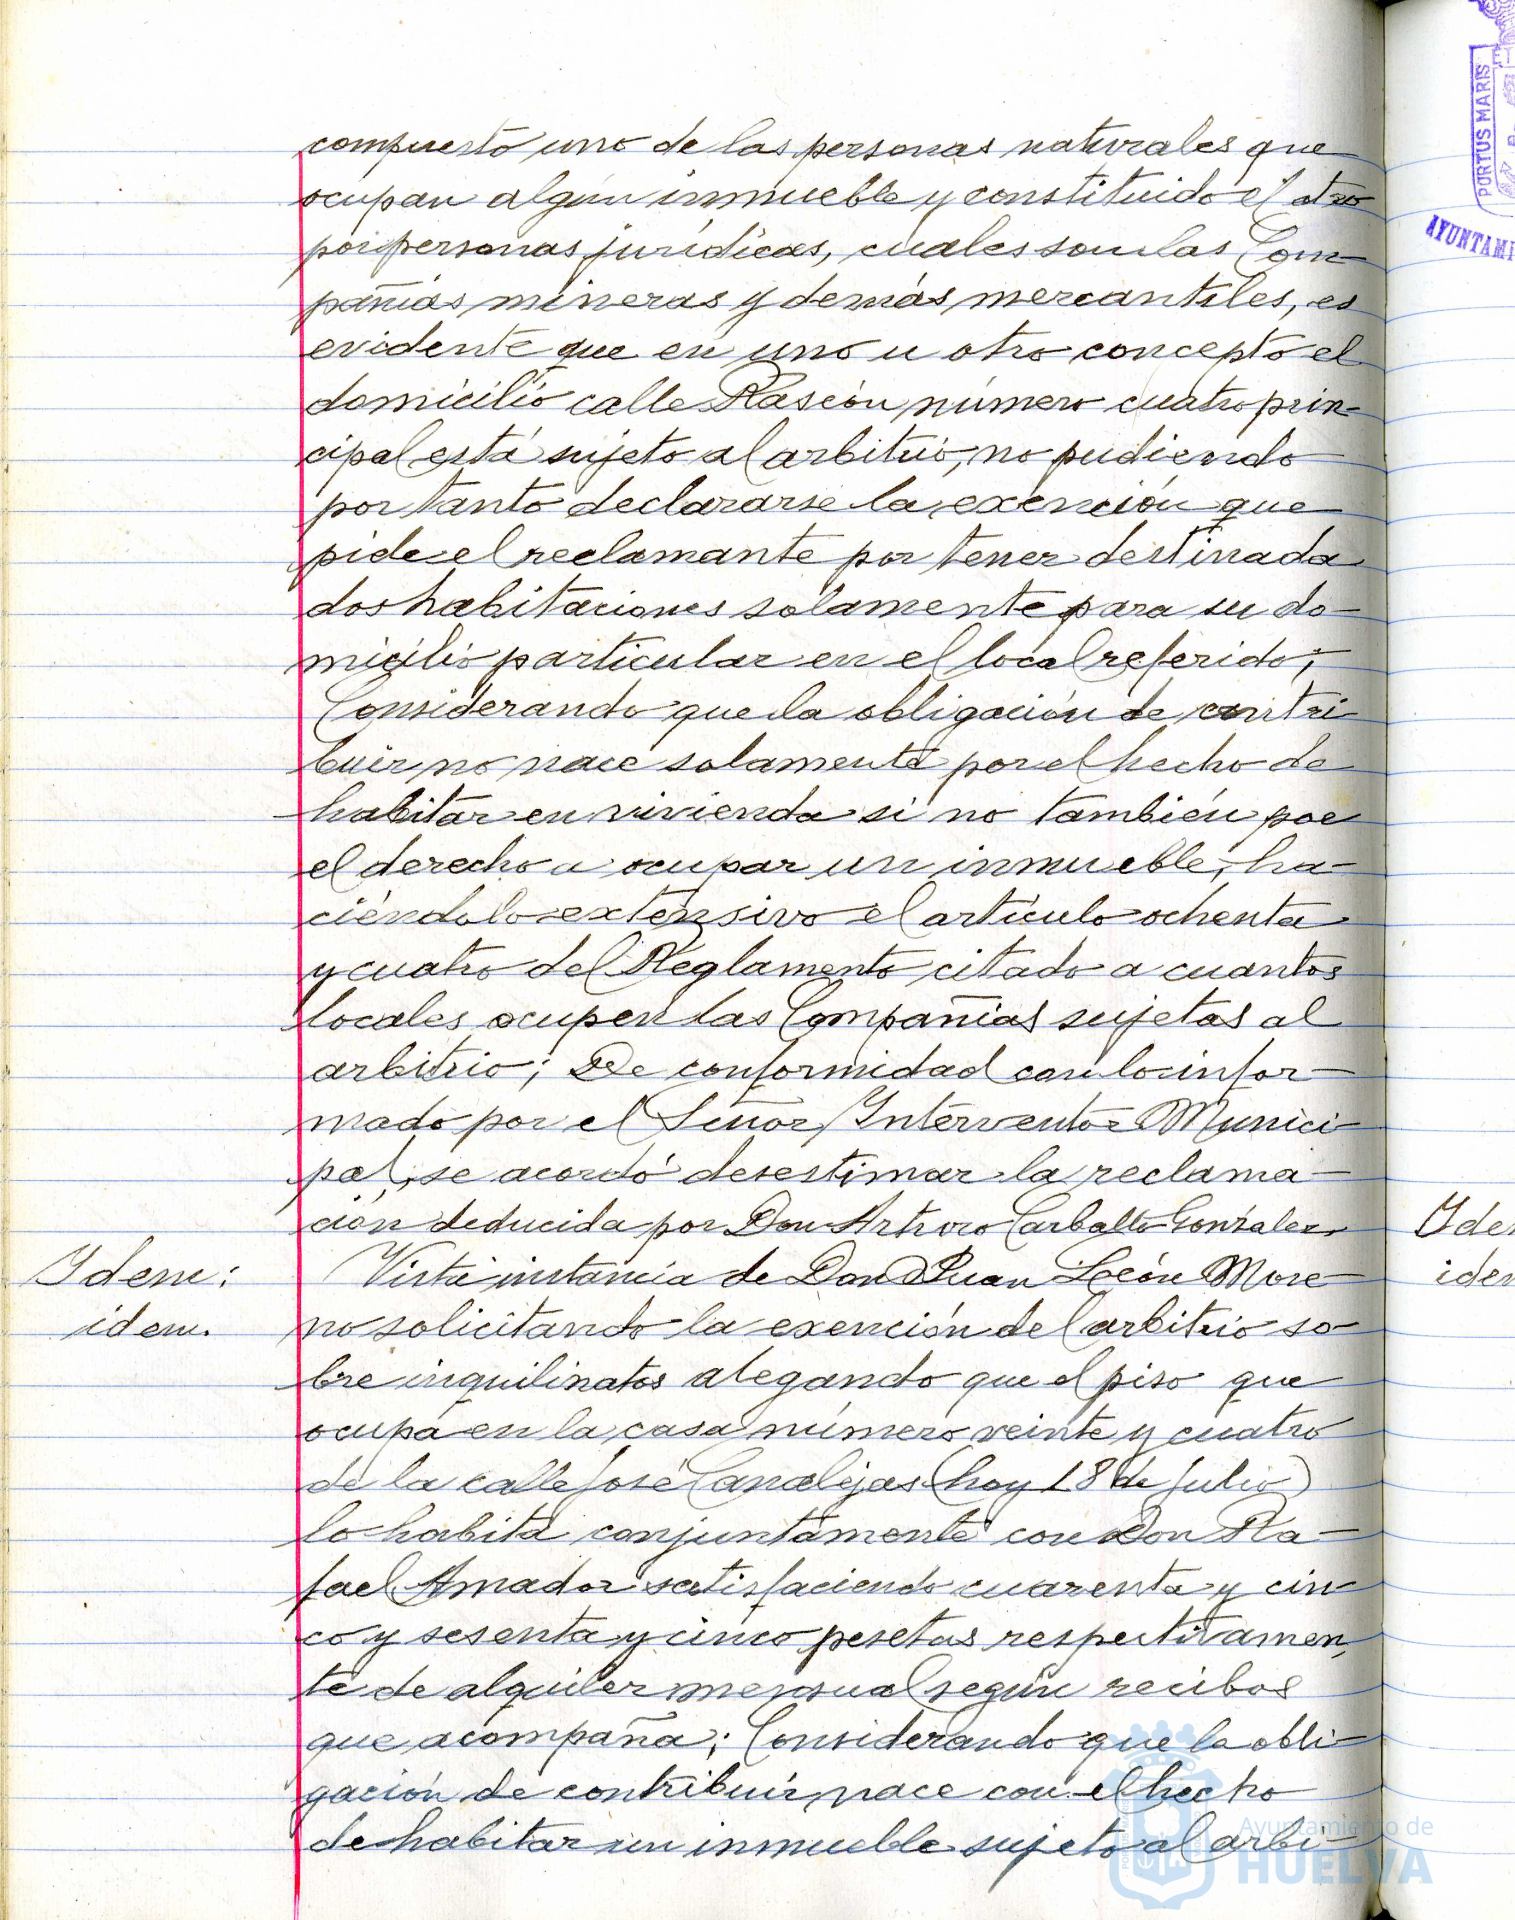 compuesto uno de las personas naturales que
ocupan algún inmueble y constituido el otro
por personas jurídicas, cuales son las Com-
pañías mineras y demás mercantiles, es
evidente que en uno u otro concepto el
domicilio calle Rascón número cuatro prin-
cipal está sujeto al arbitrio, no pudiendo
por tanto declararse la exención que
pide el reclamante por tener destinada
dos habitaciones solamente para su do-
micilio particular en el local referido;
Considerando que la obligación de contri
buir no nace solamente por el hecho de
habitar en vivienda si no también por
el derecho a ocupar un inmueble, ha-
ciéndolo extensivo el artículo ochenta
y cuatro del Reglamento citado a cuantos
locales ocupen las Compañías sujetas al
arbitrio; De conformidad con lo infor-
mado por el Señor Interventor Munici
pal, se acordó desestimar la reclama-
ción deducida por Don Arturo Carballo González.
Idem:
idem.
Vista instancia de Don Juan León More
no solicitando la exención del arbitrio so-
bre inquilinatos alegando que el piso que
ocupa en la casa número veinte y cuatro
de la calle José Canalejas (hoy 18 de Julio)
lo habita conjuntamente con Don Ra-
fael Amador satisfaciendo cuarenta y cin-
co y sesenta y cinco pesetas respectivamen
te de alquiler mensual según recibos
que acompaña; Considerando que la obli-
gación de contribuir nace con el hecho
de habitar un inmueble sujeto al arbi-
PORTUS MARIS
AYUNTAMI
Ide
iden
Ayuntamiento de
HUELVA